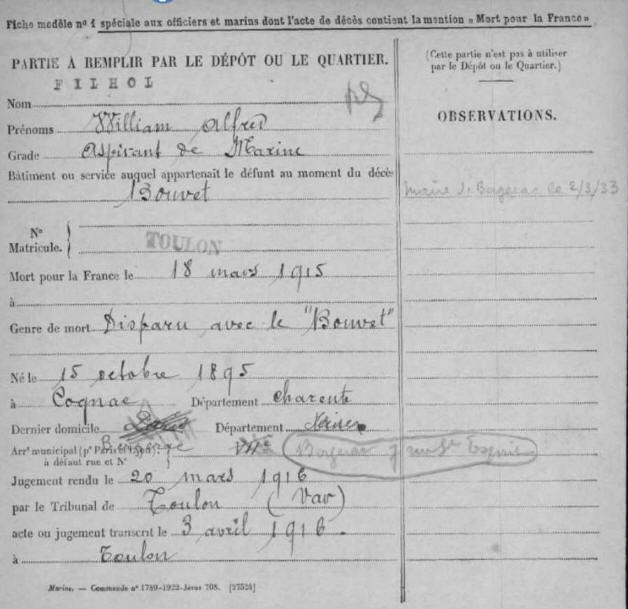 Fiche modèle nº 1 spéciale aux officiers et marins dont l'acte de décès contient la mention « Mort pour la France »
PARTIE A REMPLIR PAR LE DÉPÔT OU LE QUARTIER.
FILHOL
Nom
Prénoms William Alfred
Grade Aspirant de Marine
Bâtiment ou service auquel appartenait le défunt au moment du décès
Bouvet
Nº Matricule. TOULON
Mort pour la France le 18 mars 1915
à
Genre de mort Disparu avec le "Bouvet"
Né le 15 octobre 1895
à Cognac Département Charente
Dernier domicile Département
Arrt municipal (pr Paris et Lyon)
à défaut rue et Nº
Bergerac
Jugement rendu le 20 mars 1916
par le Tribunal de Toulon (Var)
acte ou jugement transcrit le 3 avril 1916.
à Toulon
Marine. — Commande nº 1789-1922-Jésus 708. [27524]
(Cette partie n'est pas à utiliser
par le Dépôt ou le Quartier.)
OBSERVATIONS.
Mairie de Bergerac le 2/3/33